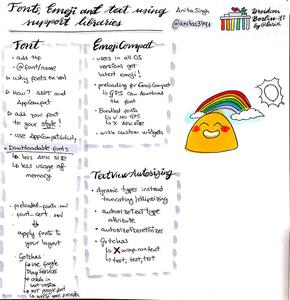 Font, Emoji and text using
support libraries
Anita Singh
@anitas3791
Droidcon
Berlin 17
Font
• add ttf
@font/name
• why fonts on xml
• How? API and
AppCompat
• add your font
to your style!
• use AppCompatActivity
• Downloadable fonts
↳ less APK size
↳ less usage of
memory
• preloaded-fonts.xml
• font-cert.xml
apply fonts to
your layout
• Gotchas
↳ use Google
Play services
EmojiCompat
• users in old OS
versions get
latest emoji!
• preloading for EmojiCompat
↳ GPS can download
the font
• Bundled fonts
↳ ✓ No GPS
↳ X APK size
• with custom widgets
TextView Autosizing
• dynamic types instead
truncating/ellipsizing
• autoSizeTextType
attribute
• autoSizePresetSizes
• Gotchas
↳ X wrap_content
↳ test, test, test